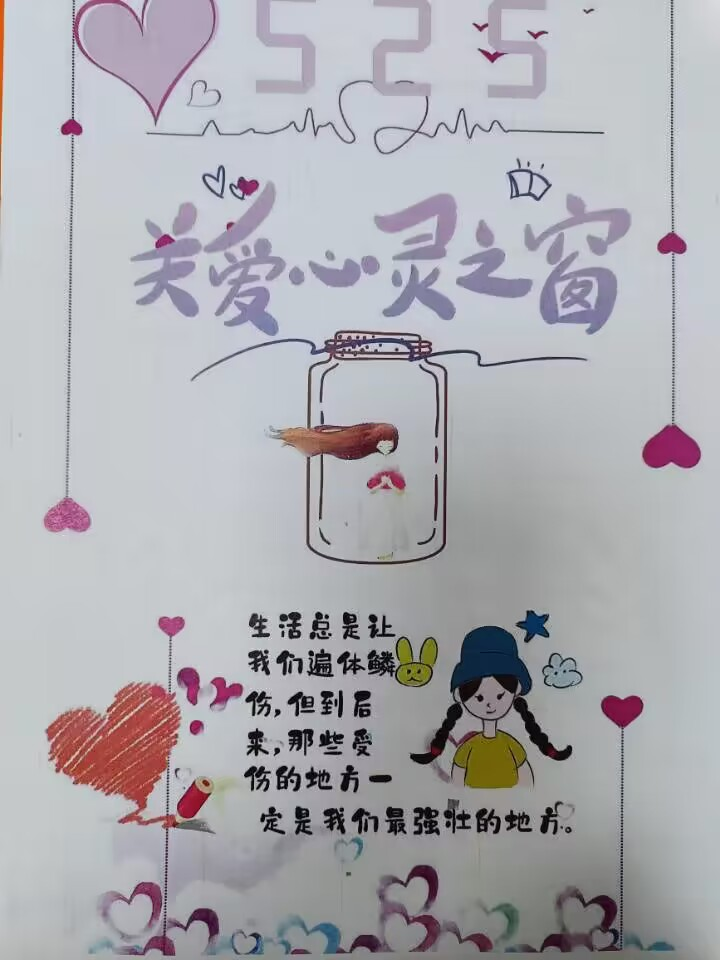 525
关爱心灵之窗
生活总是让
我们遍体鳞
伤,但到后
来,那些受
伤的地方一
定是我们最强壮的地方。